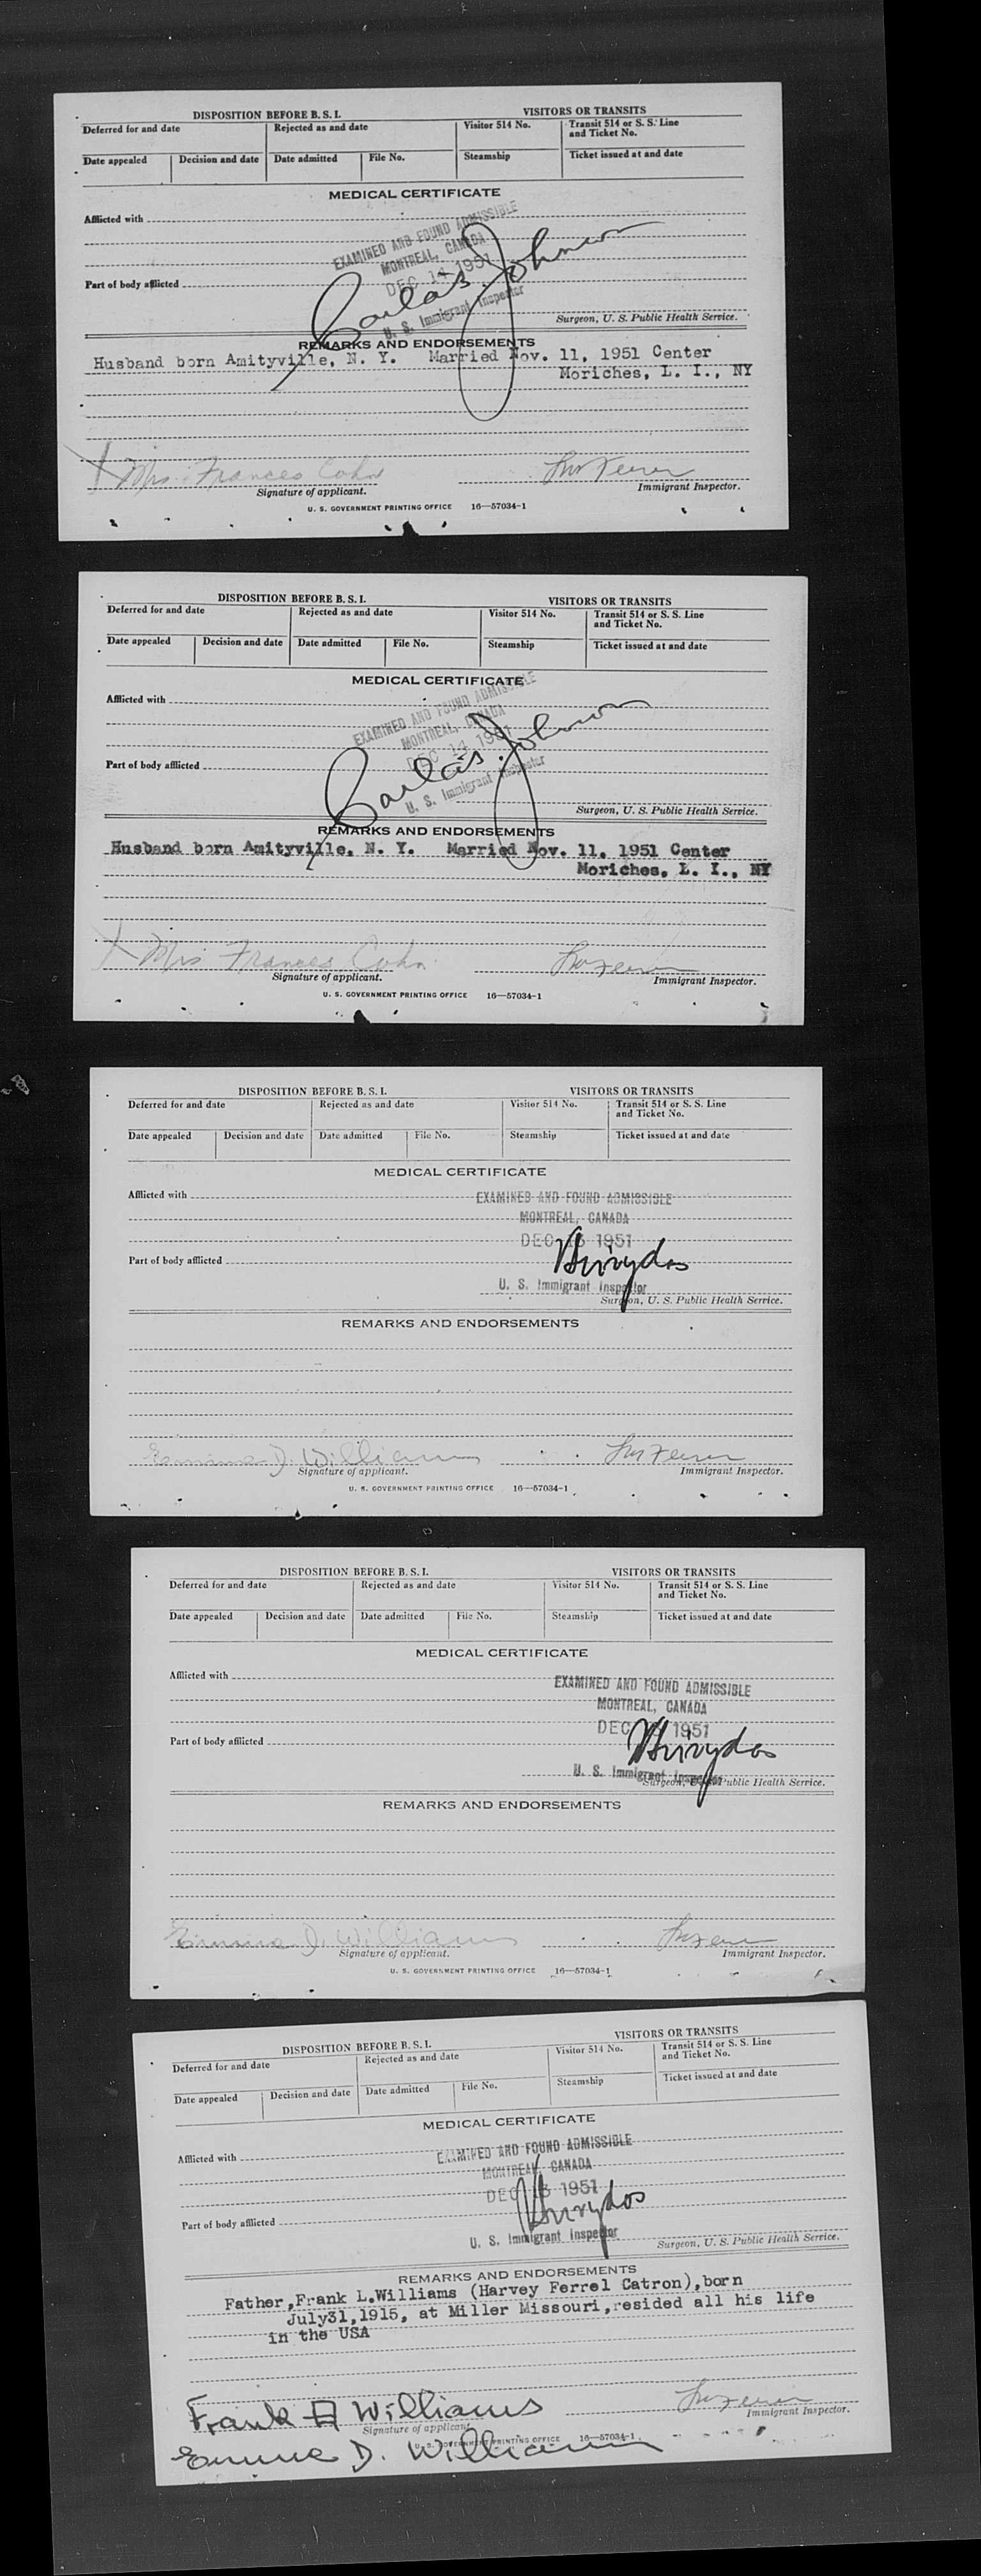 DISPOSITION BEFORE B. S. I. VISITORS OR TRANSITS
Deferred for and date Rejected as and date Visitor 514 No. Transit 514 or S. S. Line and Ticket No.
Date appealed Decision and date Date admitted File No. Steamship Ticket issued at and date
MEDICAL CERTIFICATE
Afflicted with
EXAMINED AND FOUND ADMISSIBLE
MONTREAL, CANADA
DEC 14 1951
Part of body afflicted
Johnson
U. S. Immigrant Inspector
Surgeon, U. S. Public Health Service.
REMARKS AND ENDORSEMENTS
Husband born Amityville, N. Y. Married Nov. 11, 1951 Center
Moriches, L. I., NY
X Mrs. Frances Cohn
Signature of applicant. Immigrant Inspector.
U. S. GOVERNMENT PRINTING OFFICE 16—57034-1
DISPOSITION BEFORE B. S. I. VISITORS OR TRANSITS
Deferred for and date Rejected as and date Visitor 514 No. Transit 514 or S. S. Line and Ticket No.
Date appealed Decision and date Date admitted File No. Steamship Ticket issued at and date
MEDICAL CERTIFICATE
Afflicted with
EXAMINED AND FOUND ADMISSIBLE
MONTREAL, CANADA
DEC 14 1951
Part of body afflicted
Johnson
U. S. Immigrant Inspector
Surgeon, U. S. Public Health Service.
REMARKS AND ENDORSEMENTS
Husband born Amityville, N. Y. Married Nov. 11, 1951 Center
Moriches, L. I., NY
X Mrs Frances Cohn
Signature of applicant. Immigrant Inspector.
U. S. GOVERNMENT PRINTING OFFICE 16—57034-1
DISPOSITION BEFORE B. S. I. VISITORS OR TRANSITS
Deferred for and date Rejected as and date Visitor 514 No. Transit 514 or S. S. Line and Ticket No.
Date appealed Decision and date Date admitted File No. Steamship Ticket issued at and date
MEDICAL CERTIFICATE
Afflicted with
EXAMINED AND FOUND ADMISSIBLE
MONTREAL, CANADA
DEC 1951
Part of body afflicted
U. S. Immigrant Inspector
Surgeon, U. S. Public Health Service.
REMARKS AND ENDORSEMENTS
D. Williams
Signature of applicant. Immigrant Inspector.
U. S. GOVERNMENT PRINTING OFFICE 16—57034-1
DISPOSITION BEFORE B. S. I. VISITORS OR TRANSITS
Deferred for and date Rejected as and date Visitor 514 No. Transit 514 or S. S. Line and Ticket No.
Date appealed Decision and date Date admitted File No. Steamship Ticket issued at and date
MEDICAL CERTIFICATE
Afflicted with
EXAMINED AND FOUND ADMISSIBLE
MONTREAL, CANADA
DEC 1951
Part of body afflicted
U. S. Immigrant Inspector
Surgeon, U. S. Public Health Service.
REMARKS AND ENDORSEMENTS
D. Williams
Signature of applicant. Immigrant Inspector.
U. S. GOVERNMENT PRINTING OFFICE 16—57034-1
DISPOSITION BEFORE B. S. I. VISITORS OR TRANSITS
Deferred for and date Rejected as and date Visitor 514 No. Transit 514 or S. S. Line and Ticket No.
Date appealed Decision and date Date admitted File No. Steamship Ticket issued at and date
MEDICAL CERTIFICATE
Afflicted with
EXAMINED AND FOUND ADMISSIBLE
MONTREAL, CANADA
DEC 1951
Part of body afflicted
U. S. Immigrant Inspector
Surgeon, U. S. Public Health Service.
REMARKS AND ENDORSEMENTS
Father,Frank L.Williams (Harvey Ferrel Catron),born
July31,1915, at Miller Missouri,resided all his life
in the USA
Frank A Williams
Signature of applicant. Immigrant Inspector.
U. S. GOVERNMENT PRINTING OFFICE 16—57034-1
D. Williams